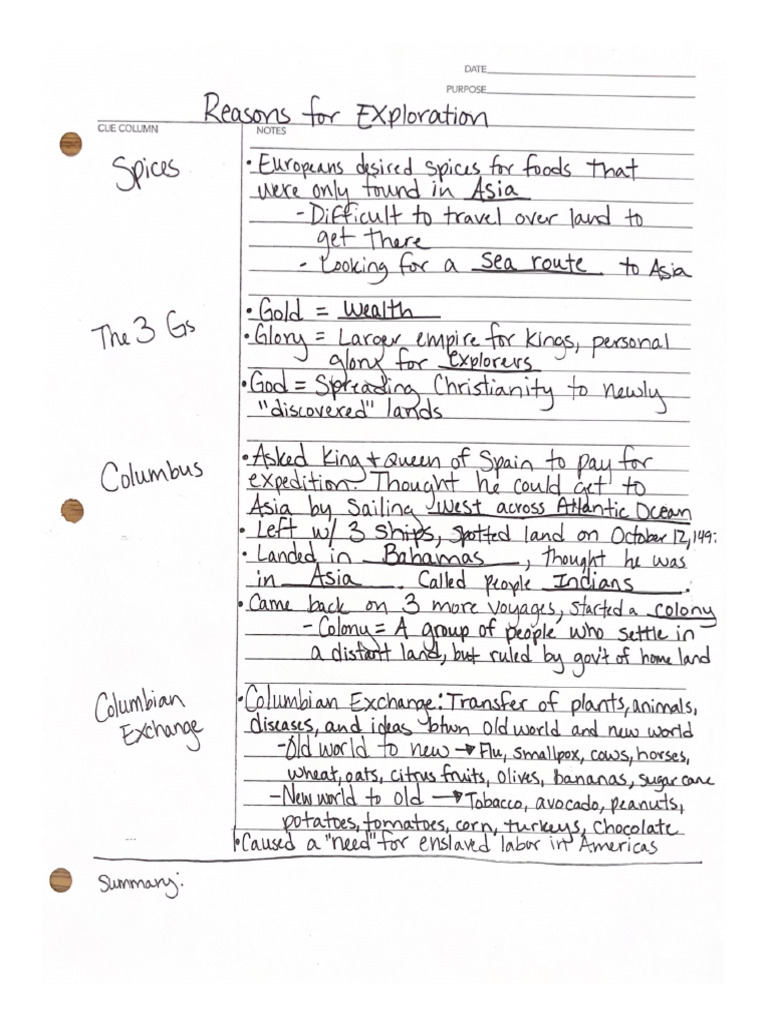 DATE
PURPOSE
Reasons for Exploration
CUE COLUMN
NOTES
Spices
• Europeans desired spices for foods that
were only found in Asia
- Difficult to travel over land to
get there
- Looking for a sea route to Asia
The 3 Gs
• Gold = wealth
• Glory = Larger empire for kings, personal
glory for explorers
• God = Spreading Christianity to newly
"discovered" lands
Columbus
• Asked King + Queen of Spain to pay for
expedition. Thought he could get to
Asia by sailing west across Atlantic Ocean
• Left w/ 3 ships, spotted land on October 12, 149
• Landed in Bahamas, thought he was
in Asia. Called people Indians.
• Came back on 3 more voyages, started a colony
- Colony = A group of people who settle in
a distant land, but ruled by gov't of home land
Columbian
Exchange
• Columbian Exchange: Transfer of plants, animals,
diseases, and ideas btwn old world and new world
- Old world to new → Flu, smallpox, cows, horses,
wheat, oats, citrus fruits, olives, bananas, sugar cane
- New world to old → Tobacco, avocado, peanuts,
potatoes, tomatoes, corn, turkeys, chocolate
• Caused a "need" for enslaved labor in Americas
Summary: